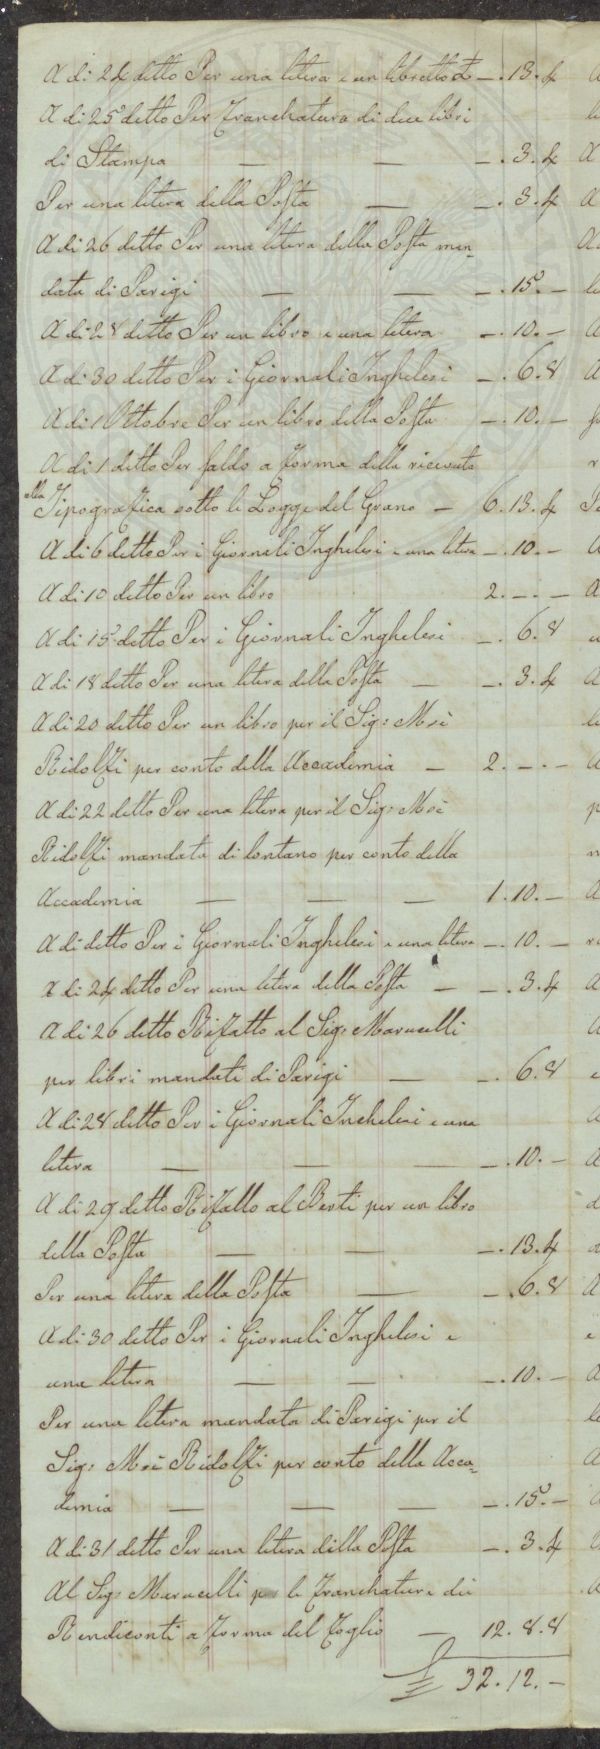 A di 24 detto Per una litera e un libretto — . 13 . 4
A di 25 detto Per Franchatura di due libri
di Stampa — — — . 3 . 4
Per una litera della Posta — — . 3 . 4
A di 26 detto Per una litera della Posta man-
data di Parigi — — — . 15 . —
A di 28 detto Per un libro e una litera — . 10 . —
A di 30 detto Per i Giornali Inghelesi — . 6 . 8
A di 1 Ottobre Per un libro della Posta — . 10 . —
A di 1 detto Per saldo a forma della ricevuta
alla Tipografica sotto le Logge del Grano — 6 . 13 . 4
A di 6 detto Per i Giornali Inghelesi e una litera — . 10 . —
A di 10 detto Per un libro 2 . — . —
A di 15 detto Per i Giornali Inghelesi — . 6 . 8
A di 18 detto Per una litera della Posta — — . 3 . 4
A di 20 detto Per un libro per il Sig: Msè
Ridolfi per conto della Accademia — 2 . — . —
A di 22 detto Per una litera per il Sig: Msè
Ridolfi mandata di lontano per conto della
Accademia — — — 1 . 10 . —
A di detto Per i Giornali Inghelesi e una litera — . 10 . —
A di 24 detto Per una litera della Posta — — . 3 . 4
A di 26 detto Rifatto al Sig: Marucelli
per libri mandati di Parigi — — . 6 . 8
A di 28 detto Per i Giornali Inchelesi e una
litera — — — — . 10 . —
A di 29 detto Rifatto al Berti per un libro
della Posta — — — . 13 . 4
Per una litera della Posta — — . 6 . 8
A di 30 detto Per i Giornali Inghelesi e
una litera — — — . 10 . —
Per una litera mandata di Parigi per il
Sig: Msè Ridolfi per conto della Acca-
demia — — — — . 15 . —
A di 31 detto Per una litera della Posta — . 3 . 4
Al Sig: Marucelli per le Franchature dei
Rendiconti a forma del Foglio — 12 . 8 . 8
£ 32 . 12 . —